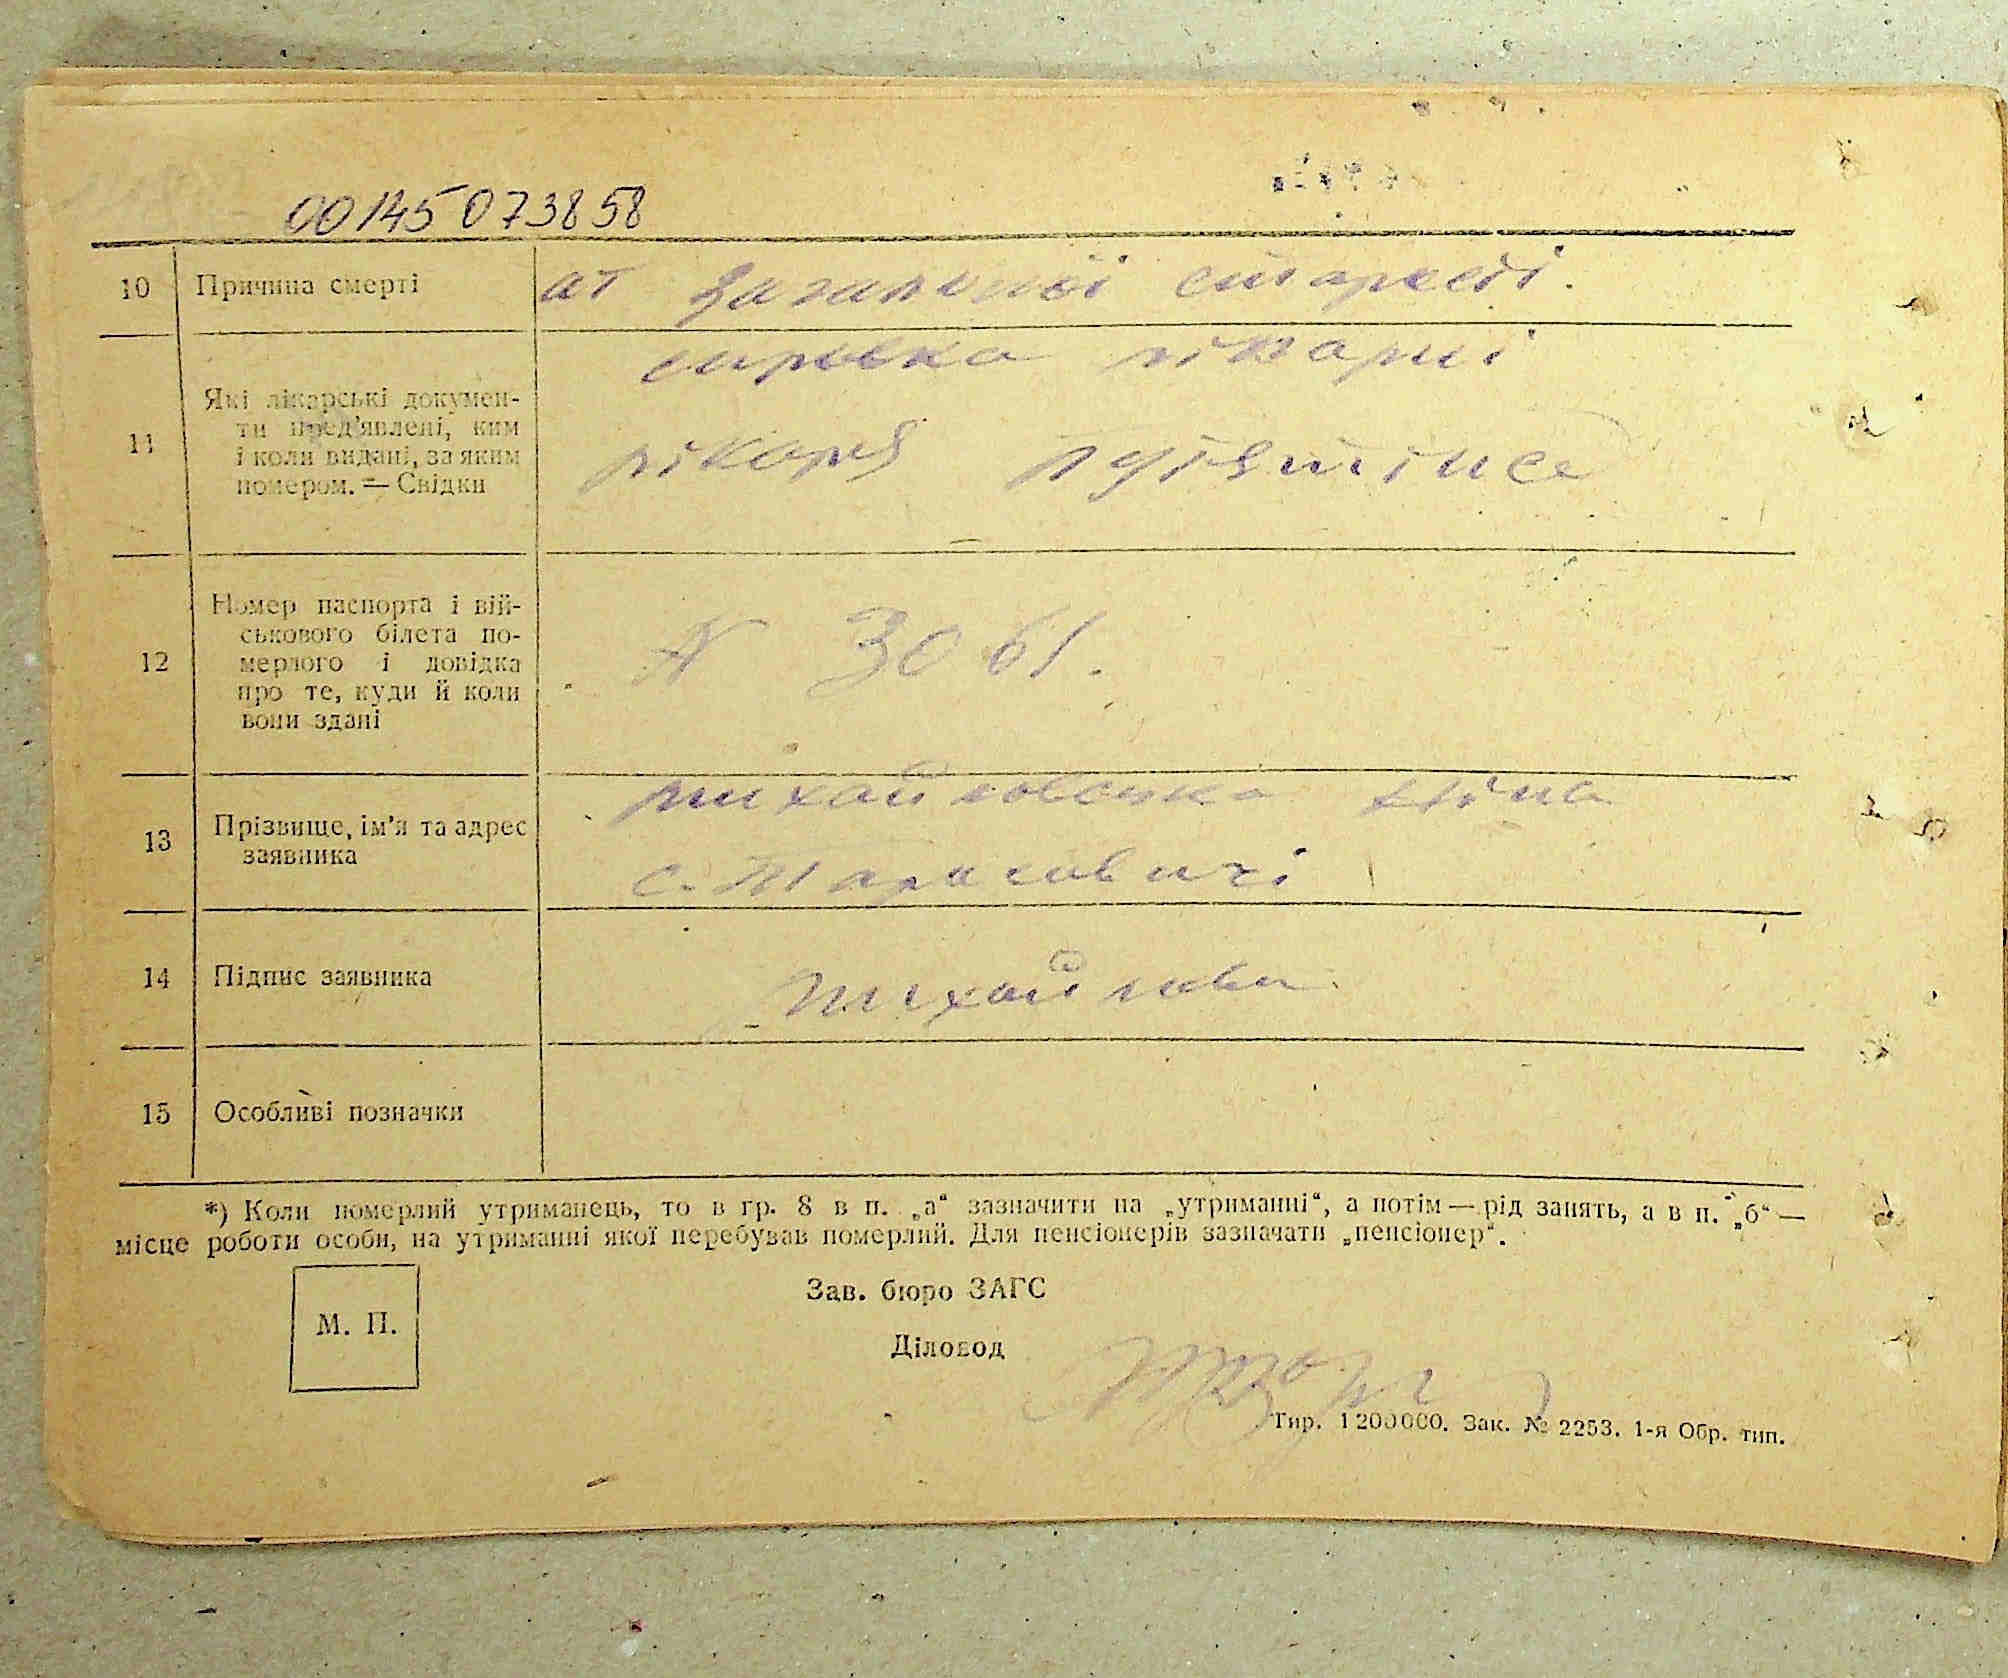 00145073858
10 Причина смерті ат загальної старості.
11 Які лікарські докумен-
ти пред'явлені, ким
і коли видані, за яким
номером. — Свідки
справка лікарні
лікаря
12 Номер паспорта і вій-
ськового білета по-
мерлого і довідка
про те, куди й коли
вони здані
№ 3061.
13 Прізвище, ім'я та адрес
заявника
Михайловська Ніна
с. Тарасовичі
14 Підпис заявника
15 Особливі позначки
*) Коли померлий утриманець, то в гр. 8 в п. „а“ зазначити на „утриманні“, а потім — рід занять, а в п. „б“ —
місце роботи особи, на утриманні якої перебував померлий. Для пенсіонерів зазначати „пенсіонер“.
М. П.
Зав. бюро ЗАГС
Діловод
Тир. 1200000. Зак. № 2253. 1-я Обр. тип.